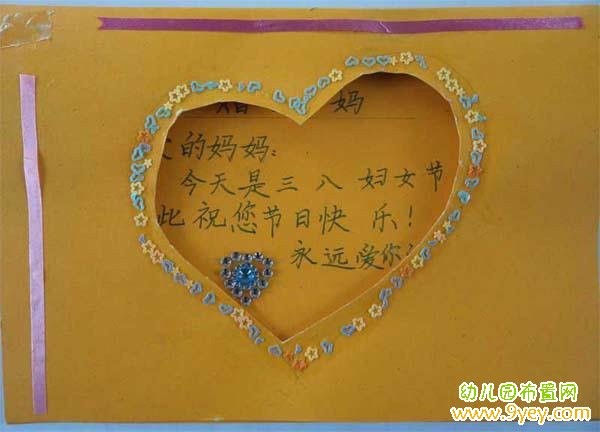 妈
的妈妈：
今天是三八妇女节
此祝您节日快乐！
永远爱你
幼儿园布置网
www.9yey.com